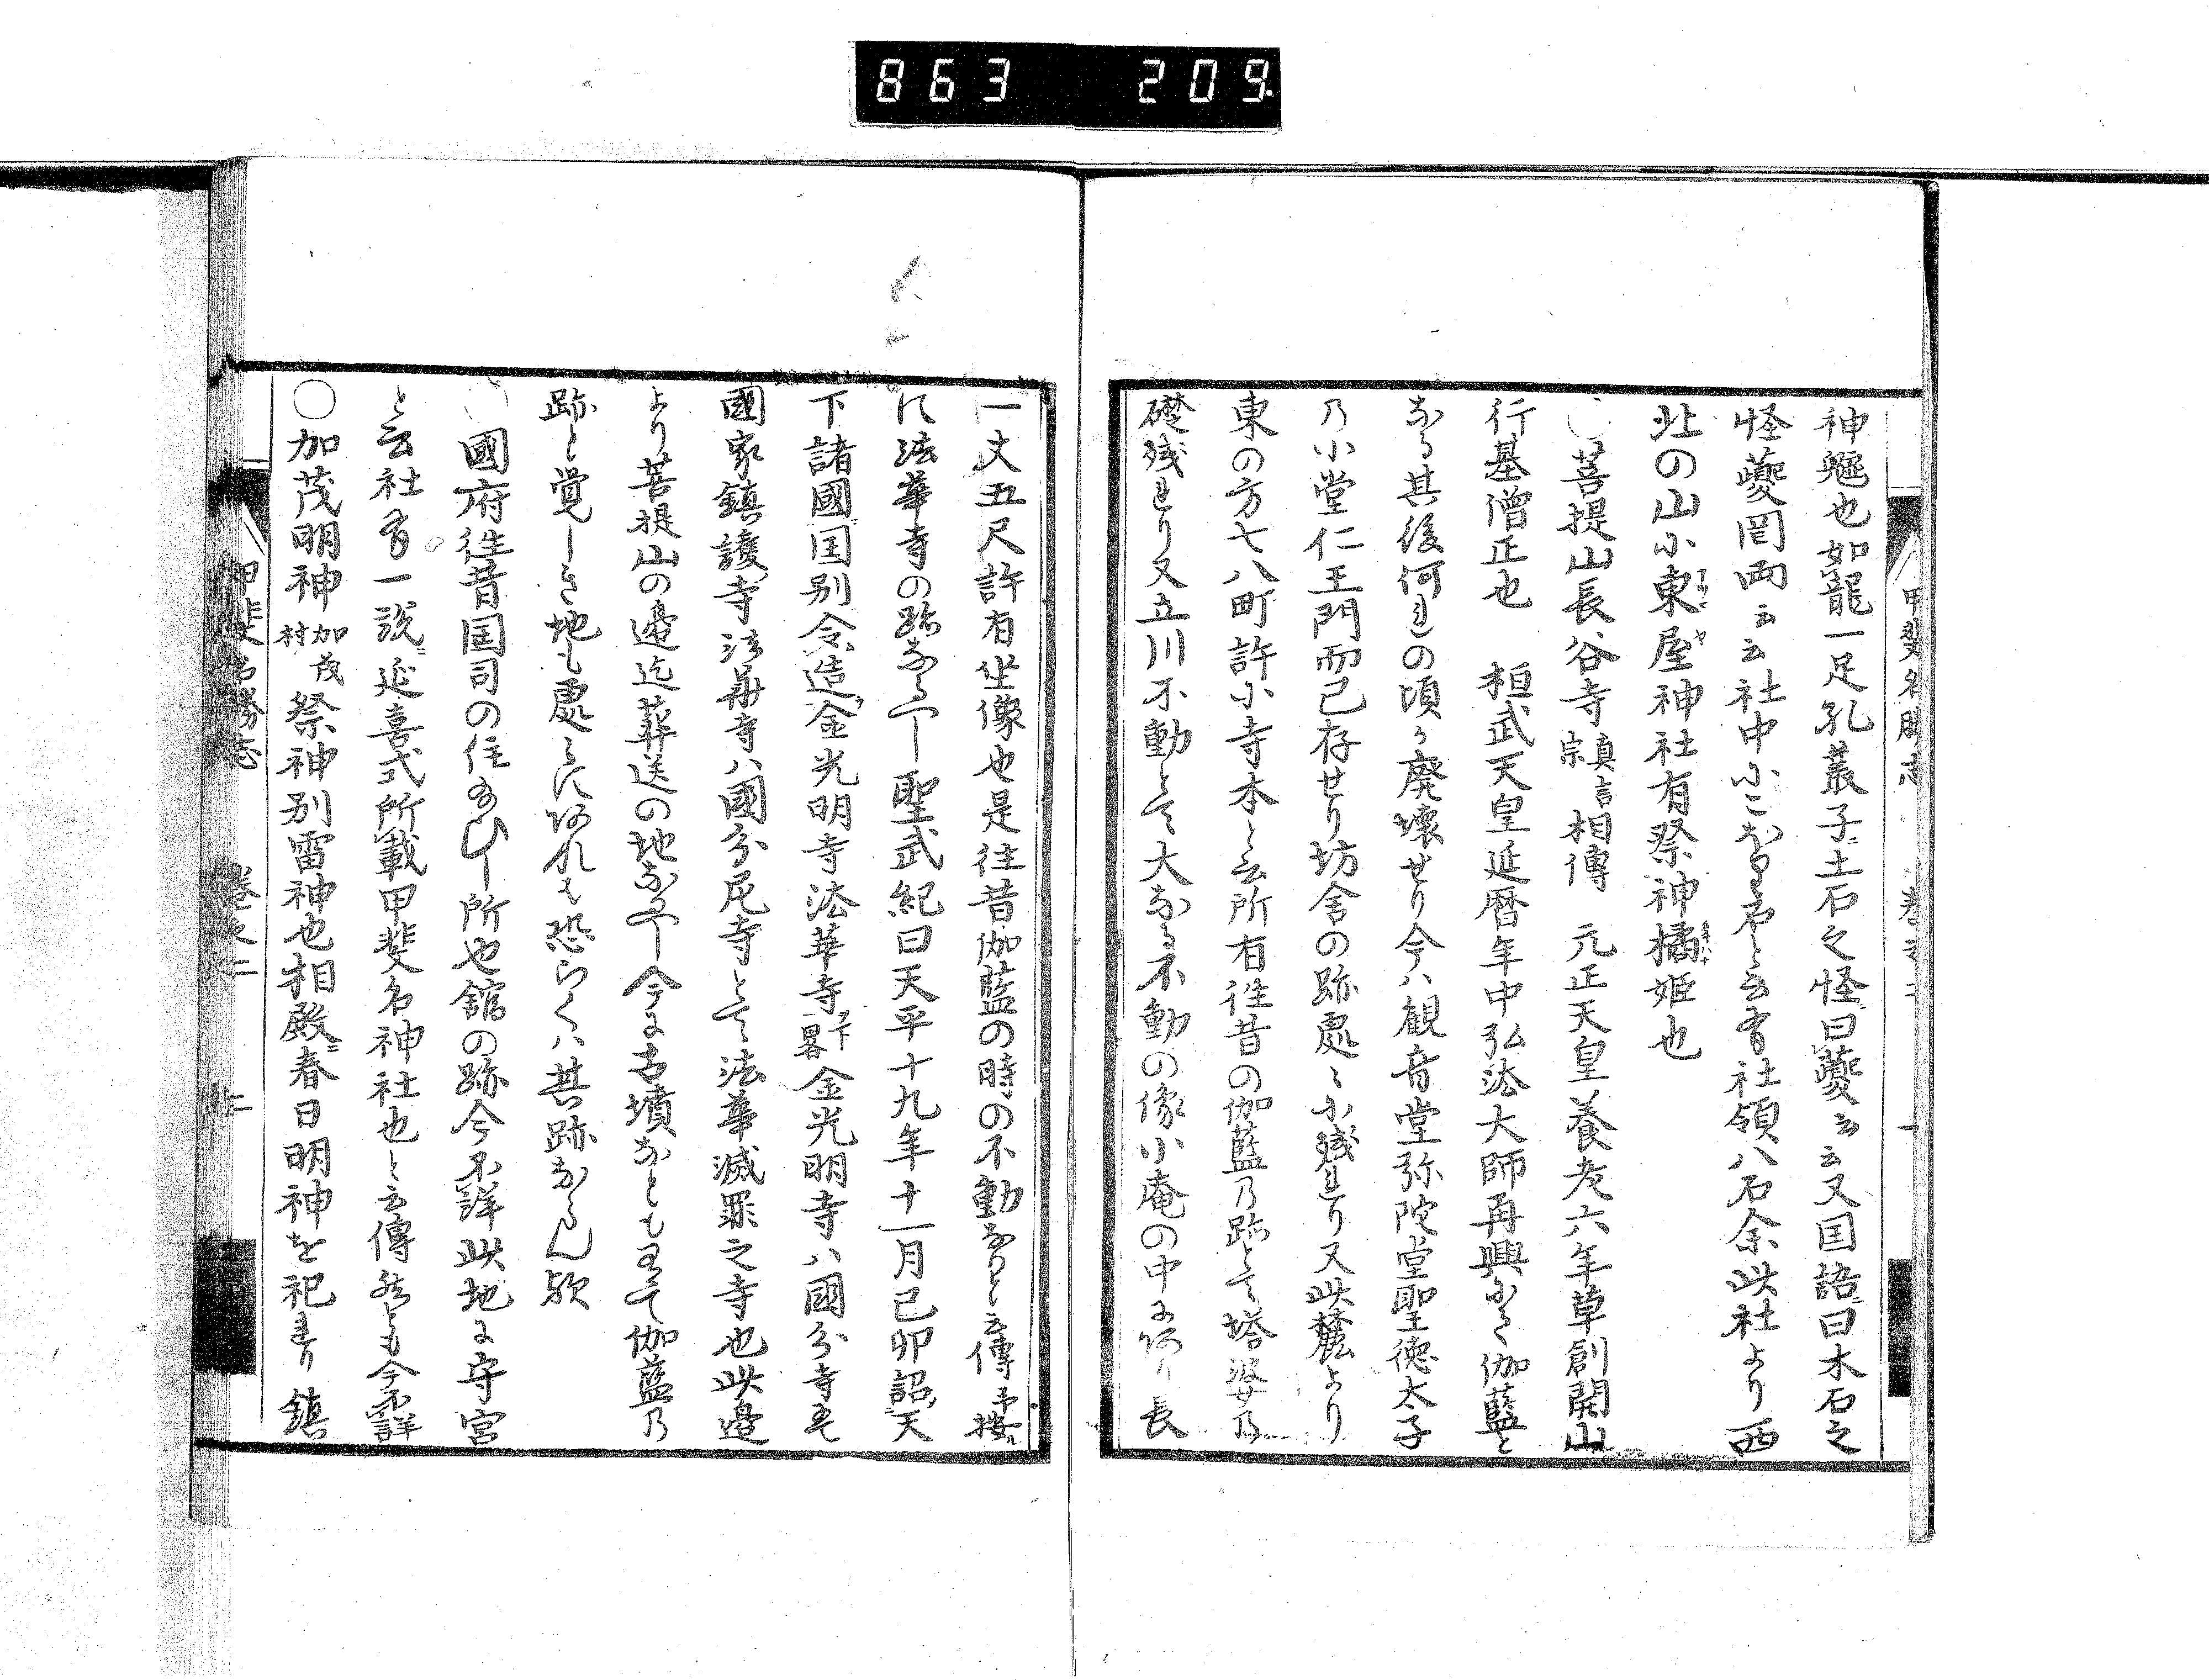 863 209
甲斐名勝志
神魖也如龍一足孔叢子ニ土石之怪曰夔云云又国語ニ曰木石之
怪夔罔両云云社中小こかる糸と云有社領八石余此社より西
北の山小東屋神社有祭神橘姫也
〇菩提山長谷寺真言宗相傳 元正天皇養老六年草創開山
行基僧正也 桓武天皇延暦年中弘法大師再興小て伽藍と
なる其後何れの頃か廃壊せり今ハ観音堂弥陀堂聖徳太子
乃小堂仁王門而已存せり坊舎の跡處〻小残れり又此麓より
東の方七八町許小寺本と云所有往昔の伽藍乃跡とて塔婆乃
礎残れり又立川不動とて大なる不動の像小庵の中にあり長
一丈五尺許有坐像也是往昔伽藍の時の不動なりと云傳予按ニ
に法華寺の跡なるへし聖武紀曰天平十九年十一月己卯詔天
下諸國国别令造金光明寺法華寺下畧金光明寺ハ國分寺也
國家鎮護寺法華寺ハ國分尼寺とて法華滅罪之寺也此邉
より菩提山の邉迄葬送の地なるへし今に古墳なとも有て伽藍乃
跡と覚しき地も處〻にあれとも恐らくハ其跡ならん歟
〇國府往昔国司の住給ひし所也舘の跡今不詳此地に守宮
と云社有一説ニ延喜式所載甲斐名神社也と云傳然とも今不詳
〇加茂明神加茂村祭神别雷神也相殿ニ春日明神を祀れり鎮
甲斐名勝志 巻之二 二